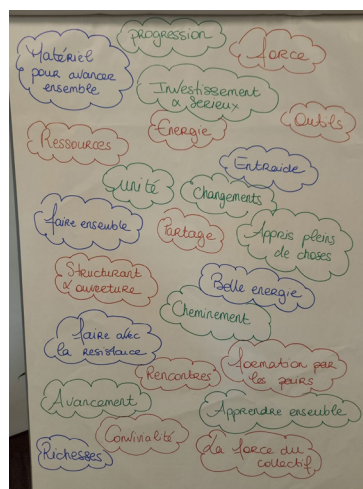 progression
Matériel
pour avancer
ensemble
force
Investissement
& serieux
Energie
Outils
Ressources
Entraide
unité
Changements
faire ensemble
Partage
Appris pleins
de choses
Structurant
& ouverture
Belle energie
Cheminement
faire avec
la resistance
Rencontres
formation par
les pairs
Avancement
Apprendre ensemble
Convivialité
La force du
collectif
Richesses